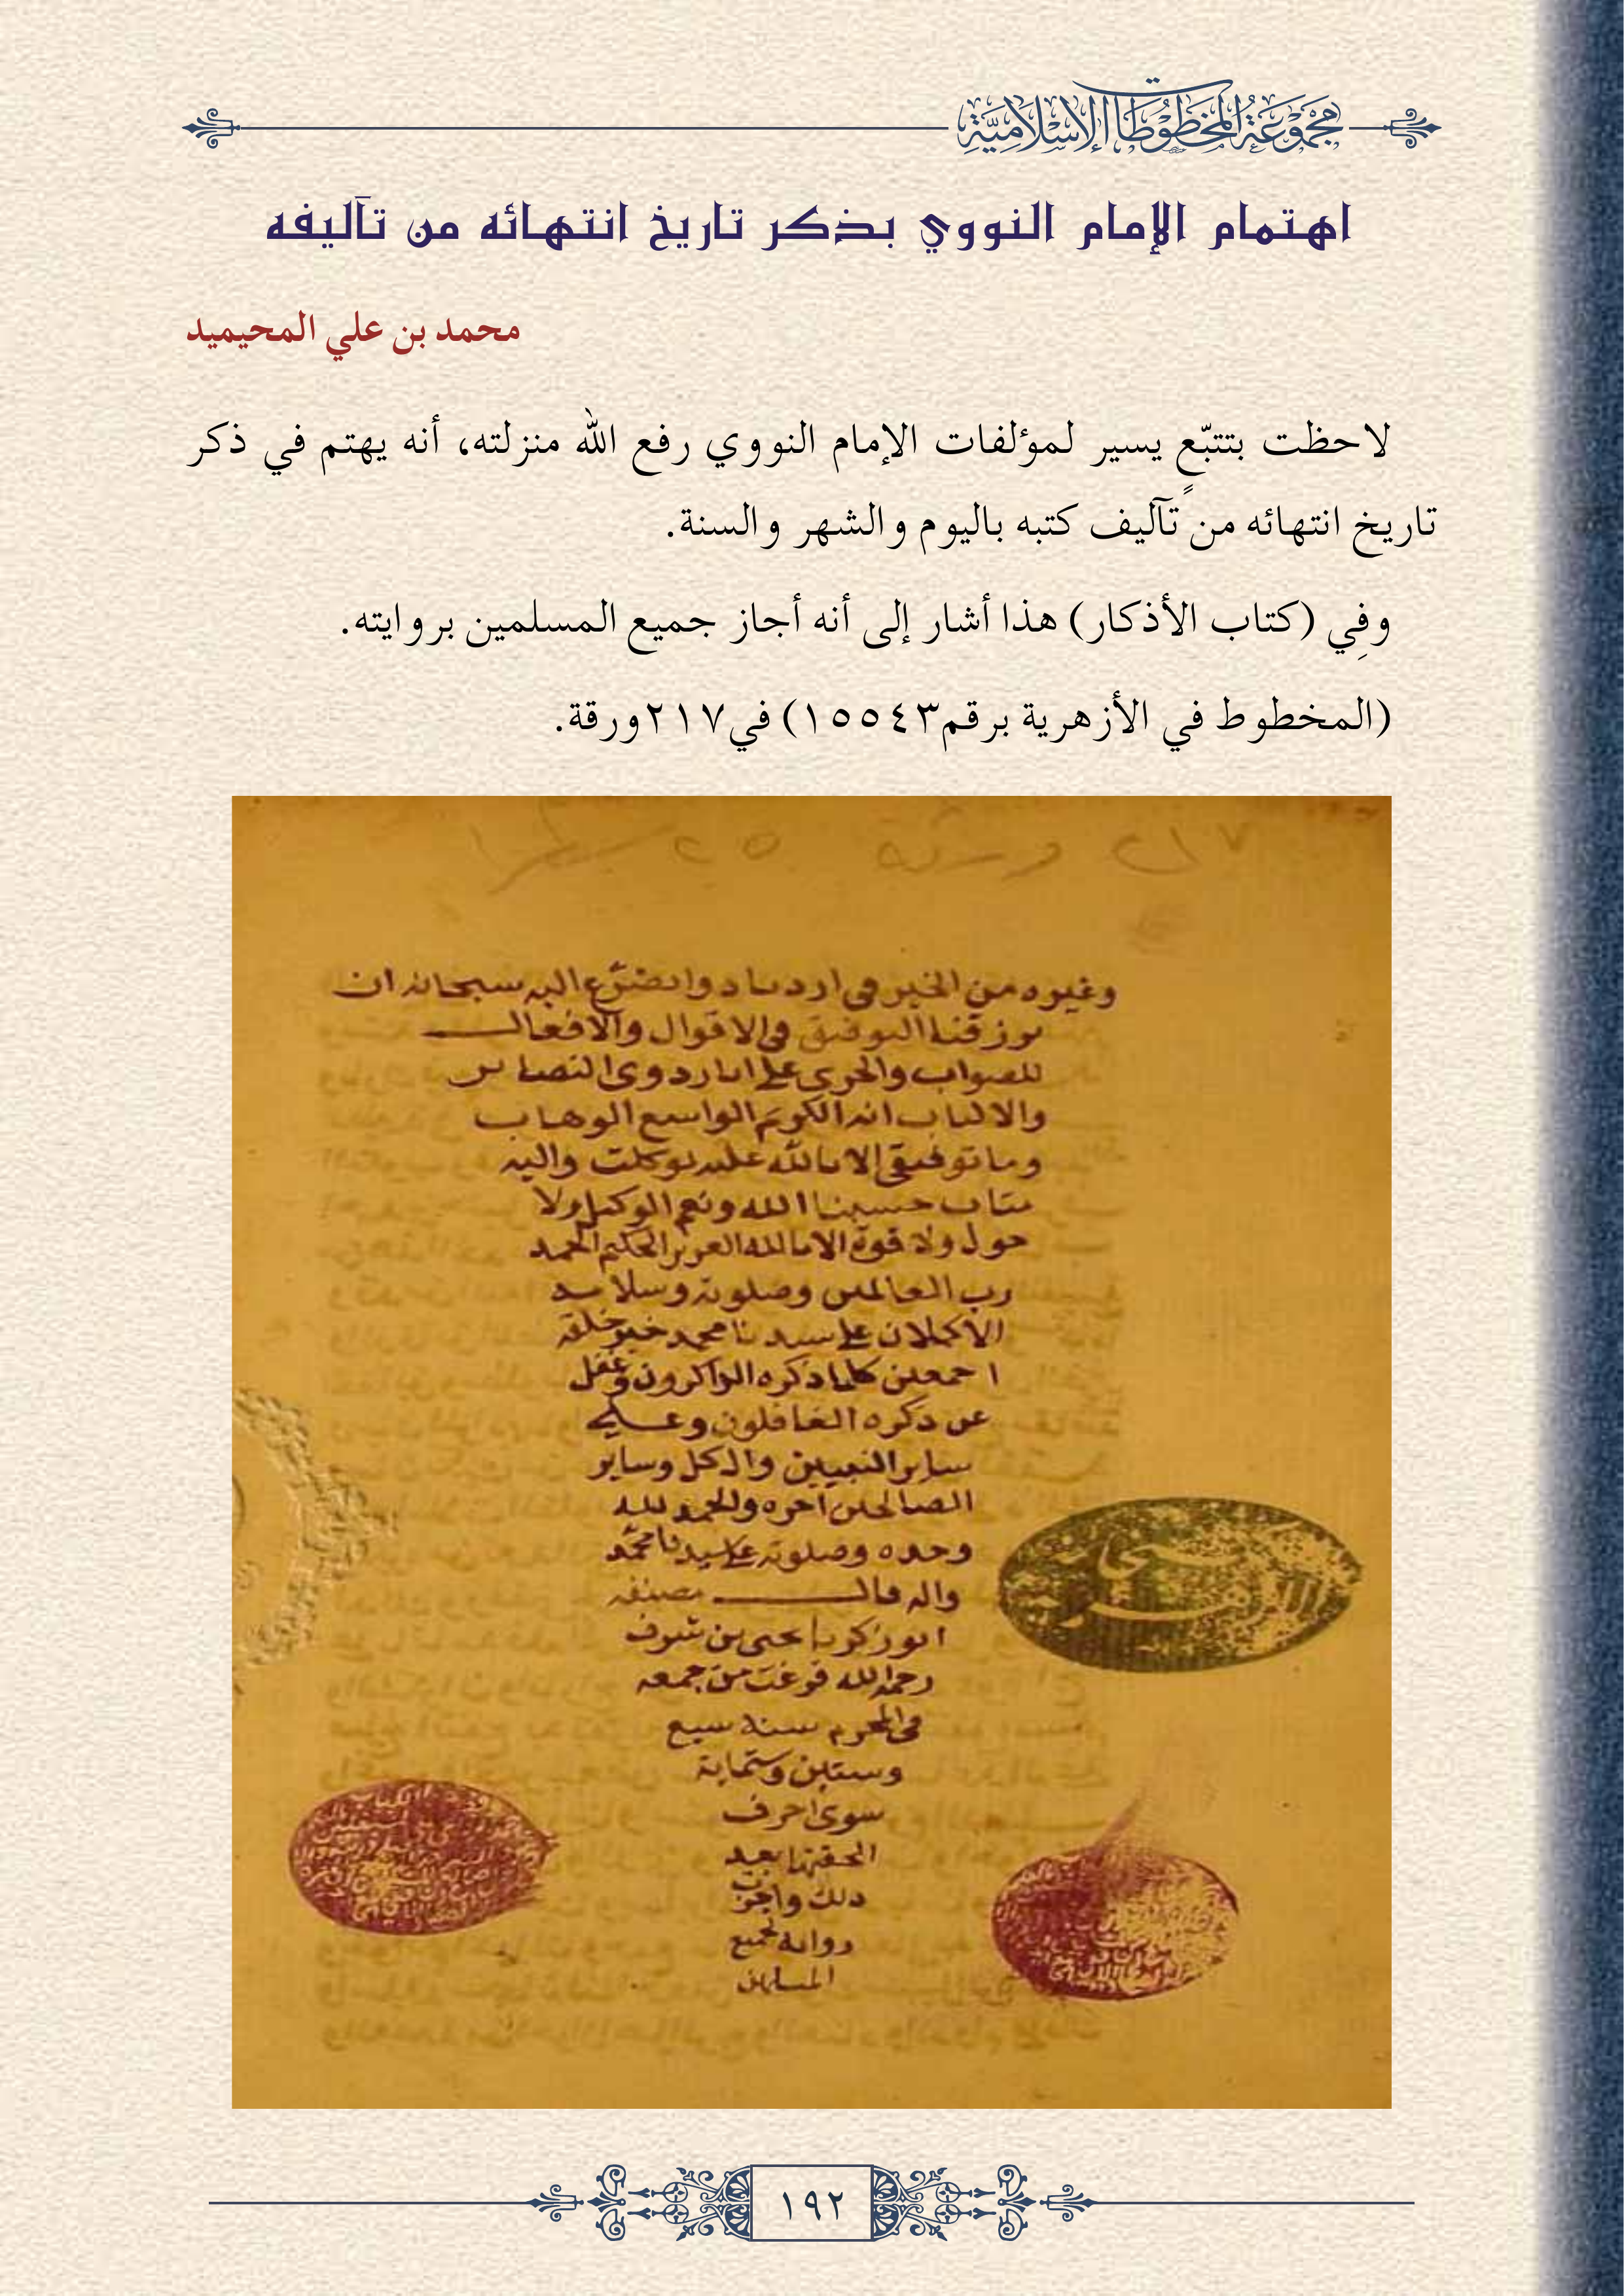 مجموعة المخطوطات الإسلامية
اهتمام الإمام النووي بذكر تاريخ انتهائه من تآليفه
محمد بن علي المحيميد
لاحظت بتتبّعٍ يسير لمؤلفات الإمام النووي رفع الله منزلته، أنه يهتم في ذكر
تاريخ انتهائه من تآليف كتبه باليوم والشهر والسنة.
وفِي (كتاب الأذكار) هذا أشار إلى أنه أجاز جميع المسلمين بروايته.
(المخطوط في الأزهرية برقم١٥٥٤٣) في٢١٧ورقة.
٢١٧ ورقة ٢٥ سطرا
وغيره من الخير في ازدياد واتضرع اليه سبحانه ان
يرزقنا التوفيق في الاقوال والافعال
للصواب والجري على اثار ذوي البصاير
والالباب انه الكريم الواسع الوهاب
وما توفيقي الا بالله عليه توكلت واليه
متاب حسبنا الله ونعم الوكيل ولا
حول ولا قوة الا بالله العزيز الحكيم الحمد
رب العالمين وصلوته وسلامه
الاكملان على سيدنا محمد خير خلقه
اجمعين كلما ذكره الذاكرون وغفل
عن ذكره الغافلون وعلى
ساير النبيين وال كل وساير
الصالحين اخره والحمد لله
وحده وصلوته على سيدنا محمد
واله قال مصنفه
ابو زكريا يحيى بن شرف
رحمه الله فرغت من جمعه
في المحرم سنة سبع
وستين وستماية
سوى احرف
الحقتها بعيد
ذلك واجزت
روايته لجميع
المسلمين
١٩٢